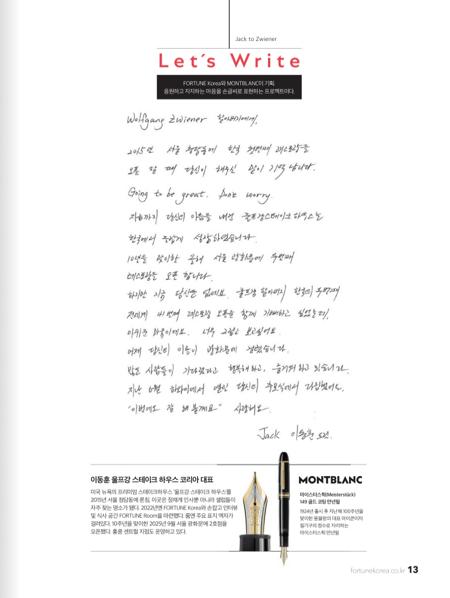 Jack to Zwiener
Let's Write
FORTUNE Korea와 MONTBLANC이 기획,
응원하고 지지하는 마음을 손글씨로 표현하는 프로젝트이다.
Wolfgang Zwiener 할아버지에게,
2015년 서울 청담동에 한국 첫번째 레스토랑을
오픈 할 때 당신이 해주신 말이 기억납니다.
Going to be great. Don't worry.
지금까지 당신의 이름을 내건 울프강스테이크하우스는
한국에서 성장하였습니다.
10년을 맞이한 올해 서울 광화문에 두번째
레스토랑을 오픈 합니다.
하지만 지금 당신은 없네요. 울프강 할아버지 한국의 두번째
전세계 레스토랑 오픈을 함께 기뻐하고 싶었는데,
아쉬운 마음이에요. 너무 그립고 보고싶어요.
어제 당신의 이름이 광화문에 걸렸습니다.
많은 사람들이 기다렸다고 행복해하고, 즐거워하고 있습니다.
지난 6월 하와이에서 열린 당신의 추모식에서 다짐했어요.
"이번에도 잘 해볼게요" 사랑해요.
Jack 이동훈 드림.
이동훈 울프강 스테이크 하우스 코리아 대표
미국 뉴욕의 프리미엄 스테이크하우스 '울프강 스테이크 하우스'를
2015년 서울 청담동에 론칭, 이곳은 정재계 인사뿐 아니라 셀럽들이
자주 찾는 명소가 됐다. 2022년엔 FORTUNE Korea와 손잡고 인터뷰
및 식사 공간 FORTUNE Room을 마련했다. 룸엔 주요 표지 액자가
걸려있다. 10주년을 맞이한 2025년 9월 서울 광화문에 2호점을
오픈했다. 홍콩 센트럴 지점도 운영하고 있다.
MONTBLANC
마이스터스튁(Meisterstück)
149 골드 코팅 만년필
1924년 출시 후 지난해 100주년을
맞이한 몽블랑의 대표 아이콘이자
필기구의 정수로 자리하는
마이스터스튁 만년필
fortunekorea.co.kr 13